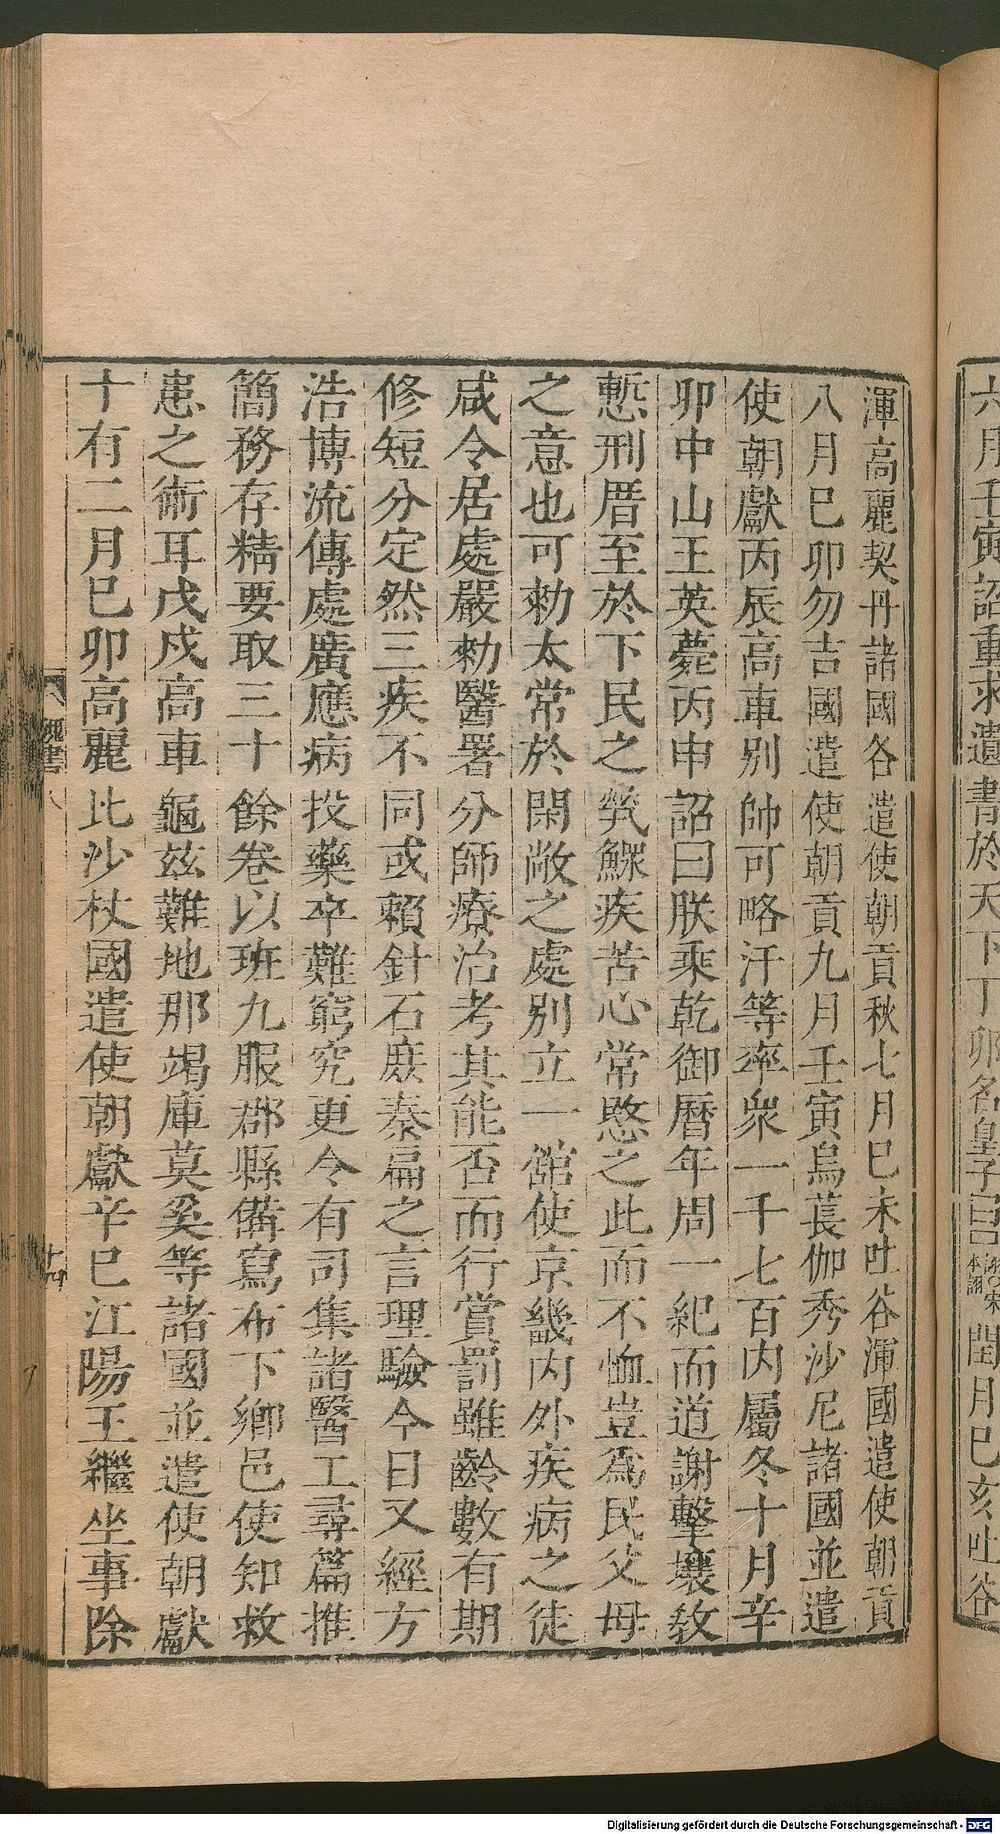 六月壬寅詔重求遺書於天下丁卯名皇子曰詡宋本詡閏月己亥吐谷
渾高麗契丹諸國各遣使朝貢秋七月巳未吐谷渾國遣使朝貢
八月巳卯勿吉國遣使朝貢九月壬寅烏萇伽秀沙尼諸國並遣
使朝獻丙辰高車別帥可略汗等率衆一千七百內屬冬十月辛
卯中山王英薨丙申詔曰朕乘乾御曆年周一紀而道謝擊壤敎
慙刑厝至於下民之煢鰥疾苦心常愍之此而不恤豈爲民父母
之意也可勑太常於閑敞之處別立一舘使京畿內外疾病之徒
咸令居處嚴勑醫署分師療治考其能否而行賞罰雖齡數有期
修短分定然三疾不同或賴針石庶秦扁之言理驗今日又經方
浩博流傳處廣應病投藥卒難窮究更令有司集諸醫工尋篇推
簡務存精要取三十餘卷以班九服郡縣備寫布下鄉邑使知救
患之術耳戊戌高車龜玆難地那竭庫莫奚等諸國並遣使朝獻
十有二月巳卯高麗比沙杖國遣使朝獻辛巳江陽王繼坐事除
魏書八
十四
Digitalisierung gefördert durch die Deutsche Forschungsgemeinschaft - DFG